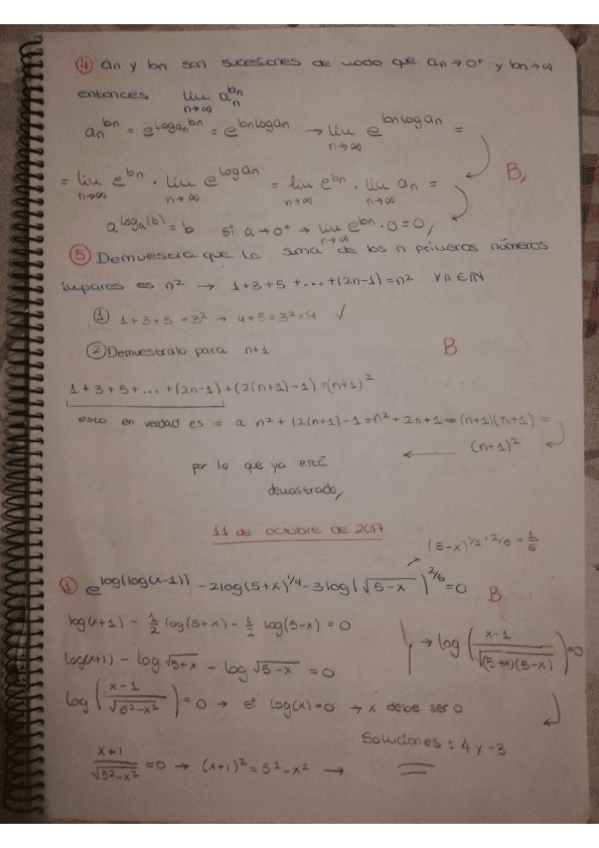 ④ an y bn son sucesiones de modo que an→0⁺ y bn→∞
entonces lim an^bn
n→∞
an^bn = e^log an^bn = e^bn log an → lim e^bn log an =
n→∞
= lim e^bn · lim e^log an = lim e^bn · lim an =
n→∞ n→∞ n→∞ n→∞
B,
a^loga(b) = b si a→0⁺ → lim e^bn · 0 = 0,
n→∞
⑤ Demuestra que la suma de los n primeros números
impares es n² → 1+3+5+...+(2n-1)=n² ∀n∈ℕ
① 1+3+5=3² → 4+5=3²=9 ✓
② Demuestralo para n+1
B
1+3+5+...+(2n-1)+(2(n+1)-1)=(n+1)²
esto en verdad es = a n²+(2(n+1)-1=n²+2n+1=(n+1)(n+1)=
(n+1)²
por lo que ya está
demostrado,
11 de octubre de 2017
(5-x)^1/2·2/6=1/6
① e^log(log(x-1)) -2log(5+x)^1/4 -3log(√5-x)^2/6=0 B
log(x+1) - 1/2 log(5+x) - 1/2 log(5-x) = 0
→ log(x-1/√(5+x)(5-x))=0
log(x+1) - log√5+x - log√5-x = 0
log(x-1/√5²-x²)=0 → si log(x)=0 → x debe ser 0
Soluciones: 4 y -3
x+1/√5²-x²=0 → (x+1)²=5²-x² →